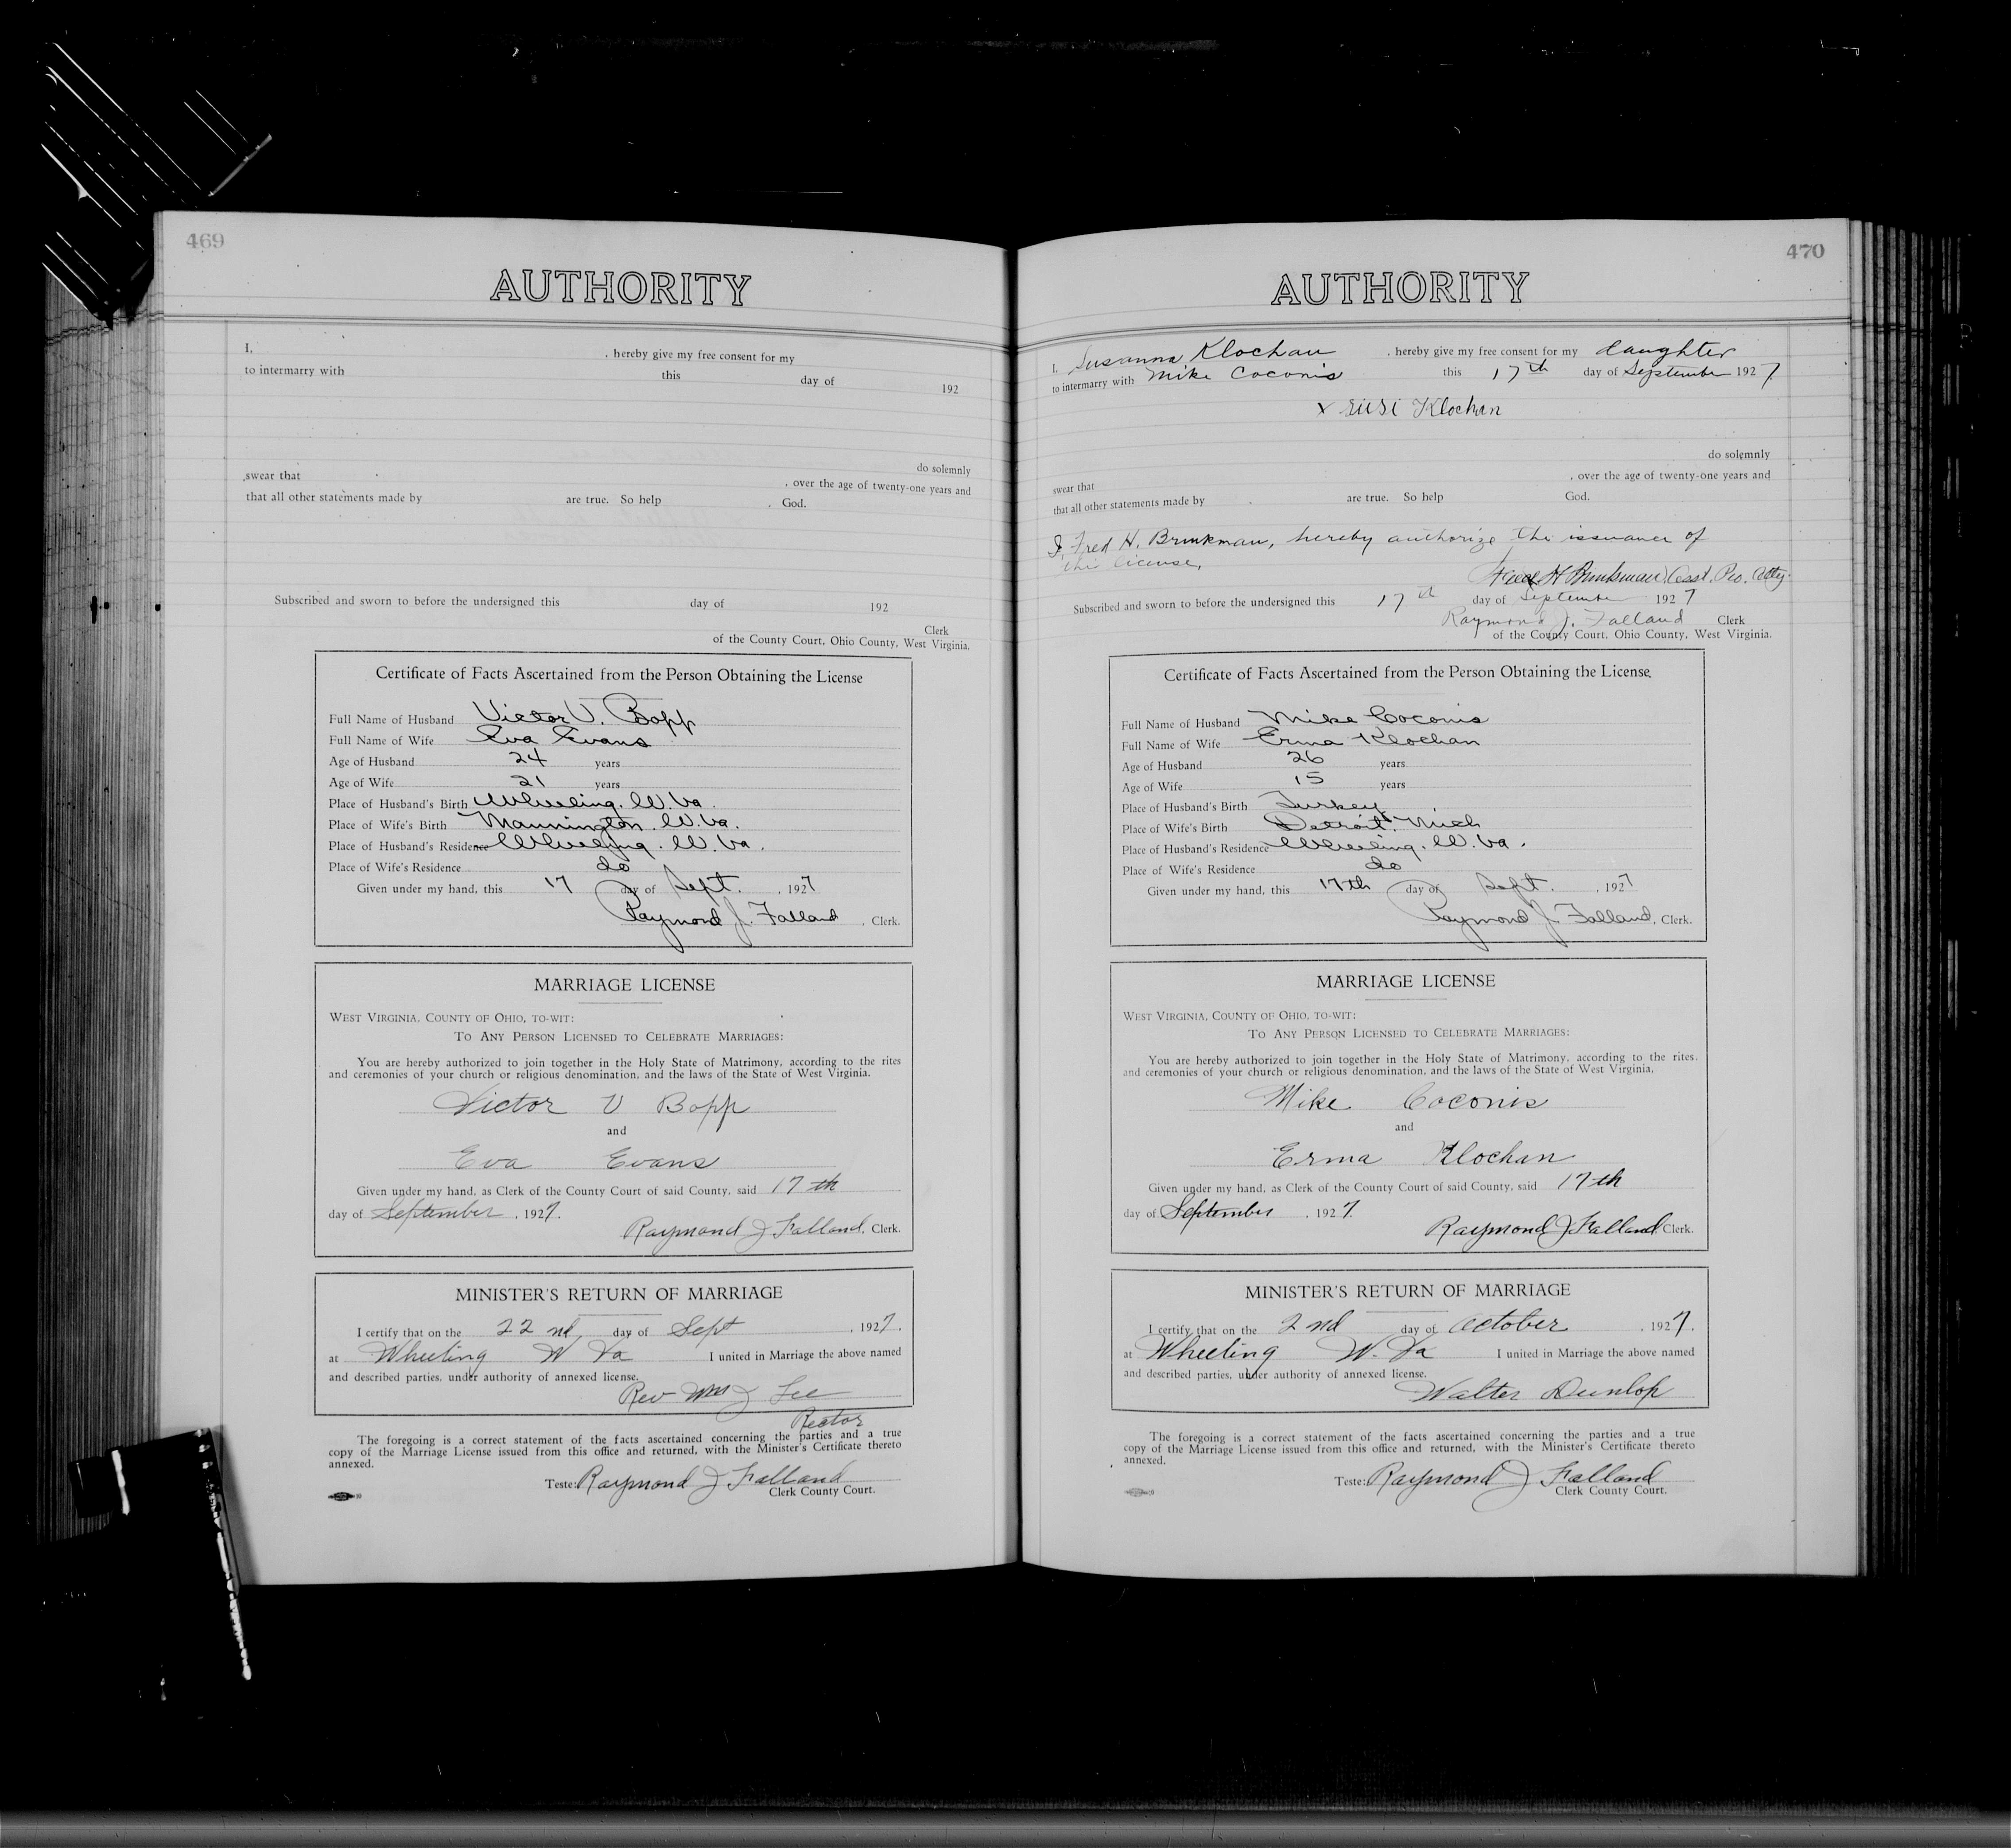 469
AUTHORITY
I, , hereby give my free consent for my
to intermarry with this day of 192
do solemnly
swear that , over the age of twenty-one years and
that all other statements made by are true. So help God.
Subscribed and sworn to before the undersigned this day of 192
Clerk
of the County Court, Ohio County, West Virginia.
Certificate of Facts Ascertained from the Person Obtaining the License
Full Name of Husband Victor V. Bopp
Full Name of Wife Eva Evans
Age of Husband 24 years
Age of Wife 21 years
Place of Husband's Birth Wheeling. W. Va.
Place of Wife's Birth Mannington. W. Va.
Place of Husband's Residence Wheeling. W. Va.
Place of Wife's Residence do
Given under my hand, this 17 day of Sept. , 1927
Raymond J. Falland , Clerk.
MARRIAGE LICENSE
WEST VIRGINIA, COUNTY OF OHIO, TO-WIT:
TO ANY PERSON LICENSED TO CELEBRATE MARRIAGES:
You are hereby authorized to join together in the Holy State of Matrimony, according to the rites
and ceremonies of your church or religious denomination, and the laws of the State of West Virginia.
Victor V Bopp
and
Eva Evans
Given under my hand, as Clerk of the County Court of said County, said 17th
day of September , 1927.
Raymond J Falland, Clerk.
MINISTER'S RETURN OF MARRIAGE
I certify that on the 22nd day of Sept , 1927.
at Wheeling W Va I united in Marriage the above named
and described parties, under authority of annexed license.
Rev Wm J Lee
Rector
The foregoing is a correct statement of the facts ascertained concerning the parties and a true
copy of the Marriage License issued from this office and returned, with the Minister's Certificate thereto
annexed.
Teste: Raymond J Falland
Clerk County Court.
470
AUTHORITY
I, Susanna Klochan , hereby give my free consent for my daughter
to intermarry with Mike Coconis this 17th day of September 1927.
x Susi Klochan
do solemnly
swear that , over the age of twenty-one years and
that all other statements made by are true. So help God.
I, Fred H. Brinkman, hereby authorize the issuance of
this license.
Fred H Brinkman Asst. Pro. Atty.
Subscribed and sworn to before the undersigned this 17th day of September 1927
Raymond J. Falland Clerk
of the County Court, Ohio County, West Virginia.
Certificate of Facts Ascertained from the Person Obtaining the License
Full Name of Husband Mike Coconis
Full Name of Wife Erma Klochan
Age of Husband 26 years
Age of Wife 15 years
Place of Husband's Birth Turkey
Place of Wife's Birth Detroit. Mich
Place of Husband's Residence Wheeling. W. Va.
Place of Wife's Residence do
Given under my hand, this 17th day of Sept. , 1927
Raymond J. Falland, Clerk.
MARRIAGE LICENSE
WEST VIRGINIA, COUNTY OF OHIO, TO-WIT:
TO ANY PERSON LICENSED TO CELEBRATE MARRIAGES:
You are hereby authorized to join together in the Holy State of Matrimony, according to the rites
and ceremonies of your church or religious denomination, and the laws of the State of West Virginia.
Mike Coconis
and
Erma Klochan
Given under my hand, as Clerk of the County Court of said County, said 17th
day of September , 1927.
Raymond J Falland Clerk.
MINISTER'S RETURN OF MARRIAGE
I certify that on the 2nd day of October , 1927.
at Wheeling W. Va I united in Marriage the above named
and described parties, under authority of annexed license.
Walter Dunlop
The foregoing is a correct statement of the facts ascertained concerning the parties and a true
copy of the Marriage License issued from this office and returned, with the Minister's Certificate thereto
annexed.
Teste: Raymond J Falland
Clerk County Court.